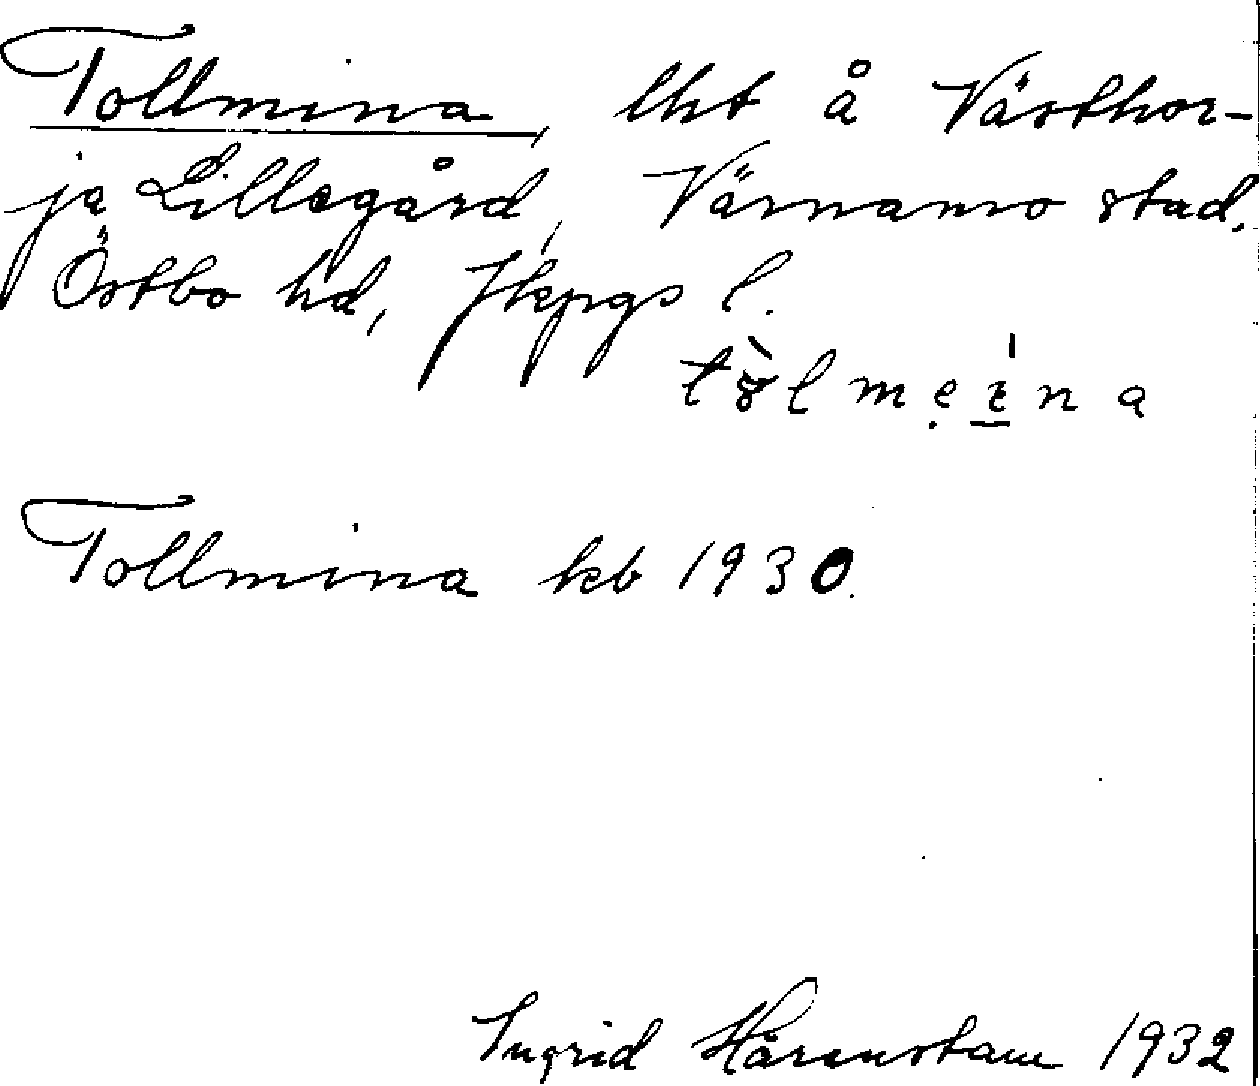 Tollmina, lht å Västhor-
ja Lillegård, Värnamo stad.
Östbo hd, Jkpgs l.
tòlmeína
Tollmina kb 1930.
Ingrid Härenstam 1932